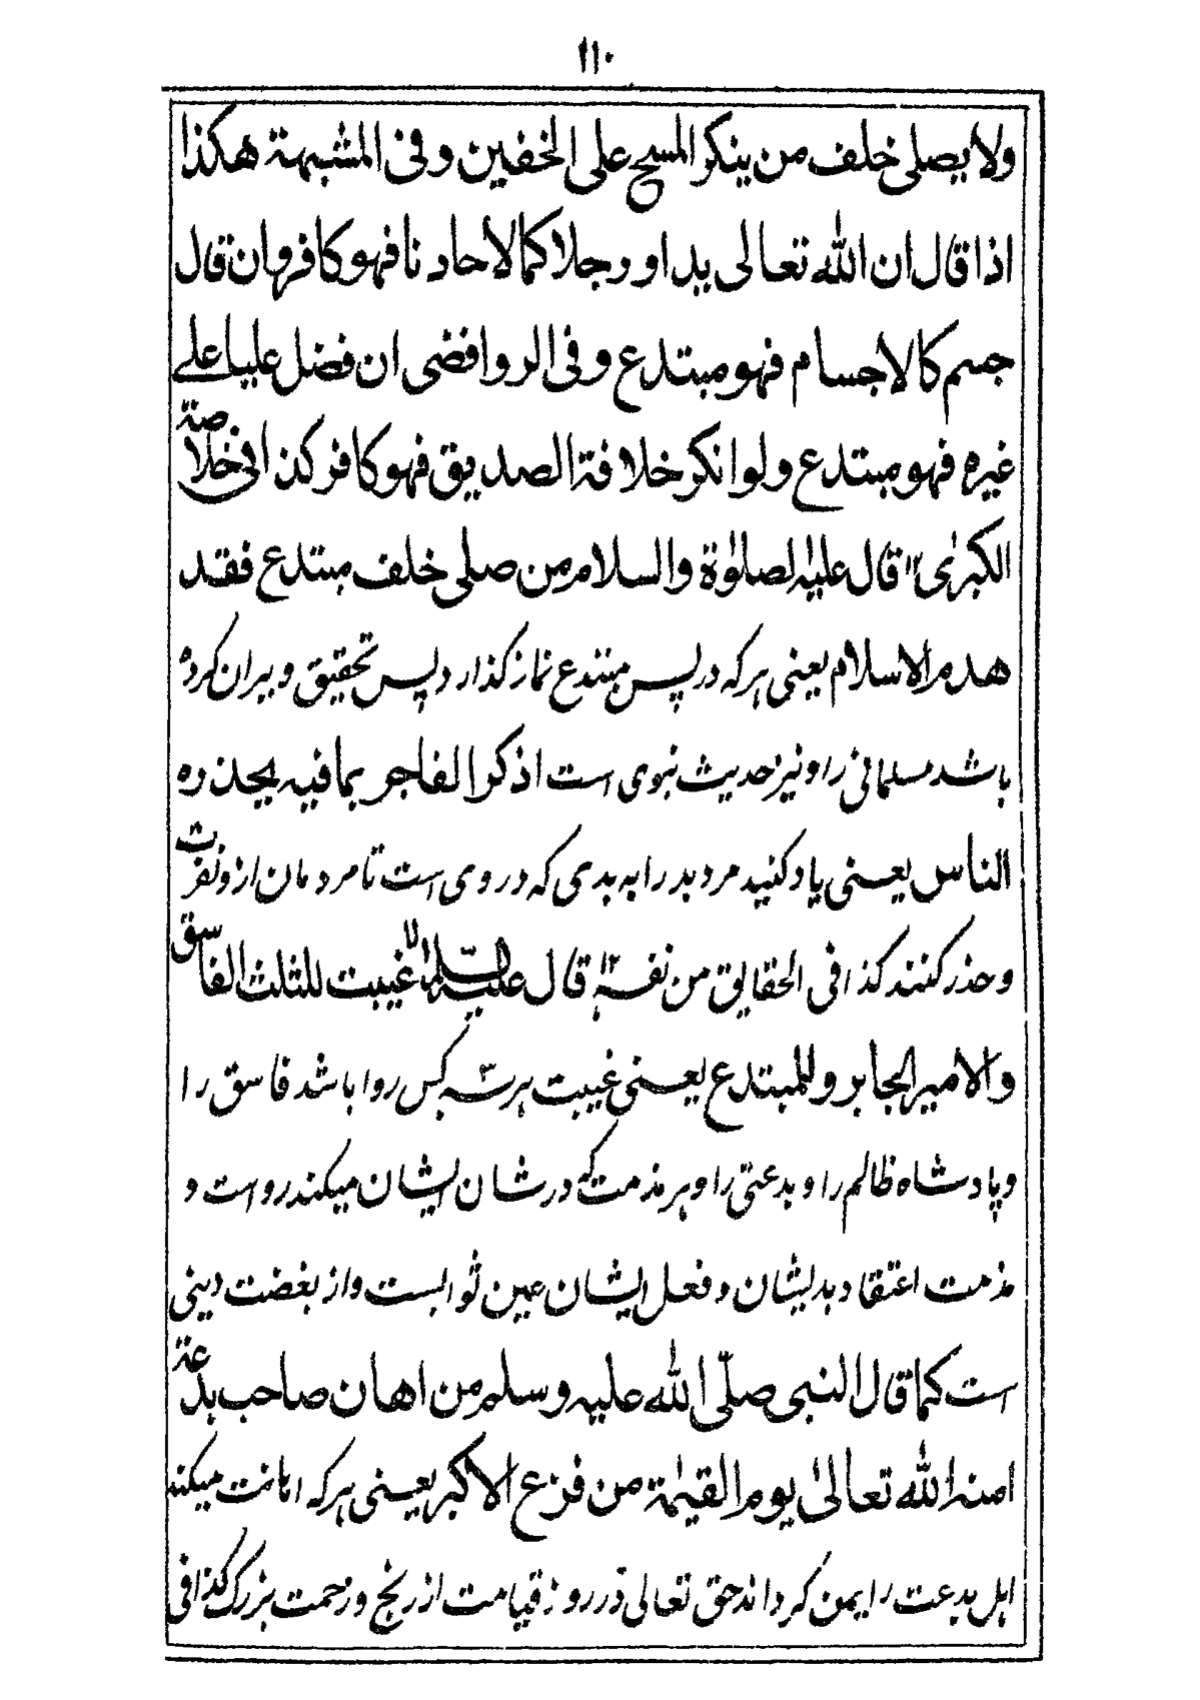 ۱۱۰
ولا يصلى خلف من ينكر المسح على الخفين وفى المشبهة هكذا
اذا قال ان الله تعالى يد او رجلا كما لاحاد نا فهو كافر وان قال
جسم كالاجسام فهو مبتدع وفى الروافضى ان فضل عليا علے
غيره فهو مبتدع ولو انكر خلافة الصديق فهو كافر كذا فى خلاصة
الكبرىٰ" قال عليه الصلوٰة والسلام من صلى خلف مبتدع فقد
هدم الاسلام یعنی ہر کہ در پس مبتدع نماز کذارد پس تحقیق ویران کردہ
باشد مسلمانی را و نیز حدیث نبوی است اذكر الفاجر بما فيه يحذره
الناس یعنی یاد کنید مرد بد را به بدی که در وی است تا مردمان ازو نفرت
و حذر کنند کذا فی الحقایق من نفسہ" قال عليه السّلام لا غيبت للثلث الفاسق
والامير الجابر وللمبتدع یعنی غیبت ہر سہ کس روا باشد فاسق را
و پادشاہ ظالم را و بدعتی را و ہر مذمت کہ در شان ایشان میکند رواست و
مذمت اعتقاد بد ایشان و فعل ایشان عین ثوابست و از بغضت دینی
است كما قال النبى صلّى الله عليه وسلم من اهان صاحب بدعة
امنه الله تعالىٰ يوم القيٰمة من فزع الاكبر یعنی ہر کہ اہانت میکند
اہل بدعت را ایمن کرداند حق تعالی در روز قیامت از رنج و زحمت بزرک کذا فی